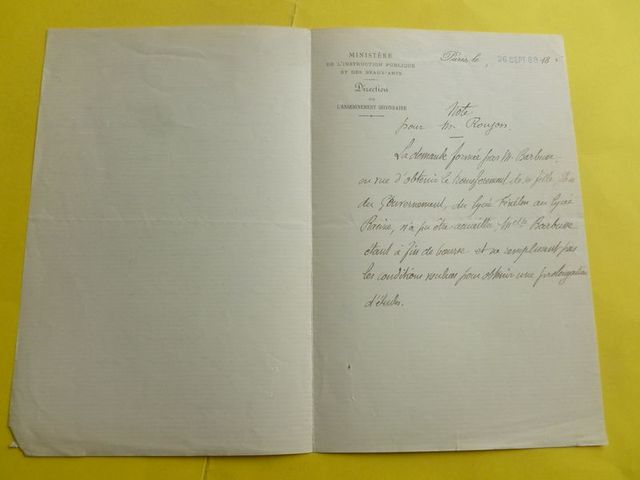 MINISTÈRE
DE L'INSTRUCTION PUBLIQUE
ET DES BEAUX-ARTS
Direction
DE
L'ENSEIGNEMENT SECONDAIRE
Paris, le 26 SEPT 98 18
Note
pour M. Roujon.
La demande formée par M. Barbusse
en vue d'obtenir le transfèrement de sa fille, élève
du Gouvernement, du lycée Fénelon au lycée
Racine, n'a pu être accueillie, Melle Barbusse
étant à fin de bourse et ne remplissant pas
les conditions voulues pour obtenir une prolongation
d'études.